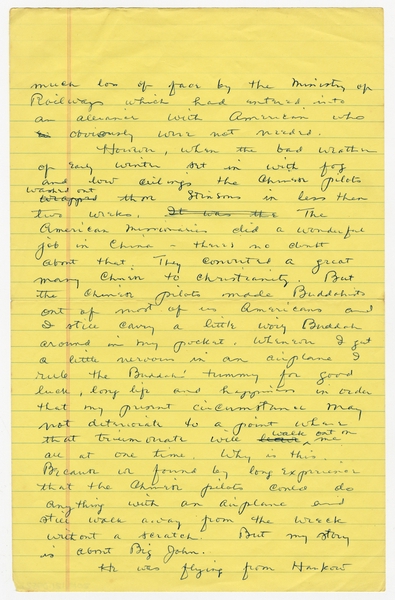 much loss of face by the Ministry of
Railways which had entered into
an alliance with American who
so obviously were not needed.
However, when the bad weather
of early winter set in with fog
and low ceilings the Chinese pilots
washed out
wrapped those Stinsons in less than
two weeks. It was the The
American Missionaries did a wonderful
job in China – there's no doubt
about that. They converted a great
many Chinese to Christianity. But
the Chinese pilots made Buddahists
out of most of us Americans and
I still carry a little ivory Buddah
around in my pocket. Whenever I get
a little nervous in an airplane I
rub the Buddah' tummy for good
luck, long life and happiness in order
that my present circumstance may
not deteriorate to a point where
that triumvirate will walk out on me
all at one time. Why is this.
Because we found by long experience
that the Chinese pilots could do
anything with an airplane and
still walk away from the wreck
without a scratch. But my story
is about Big John.
He was flying from Hankow